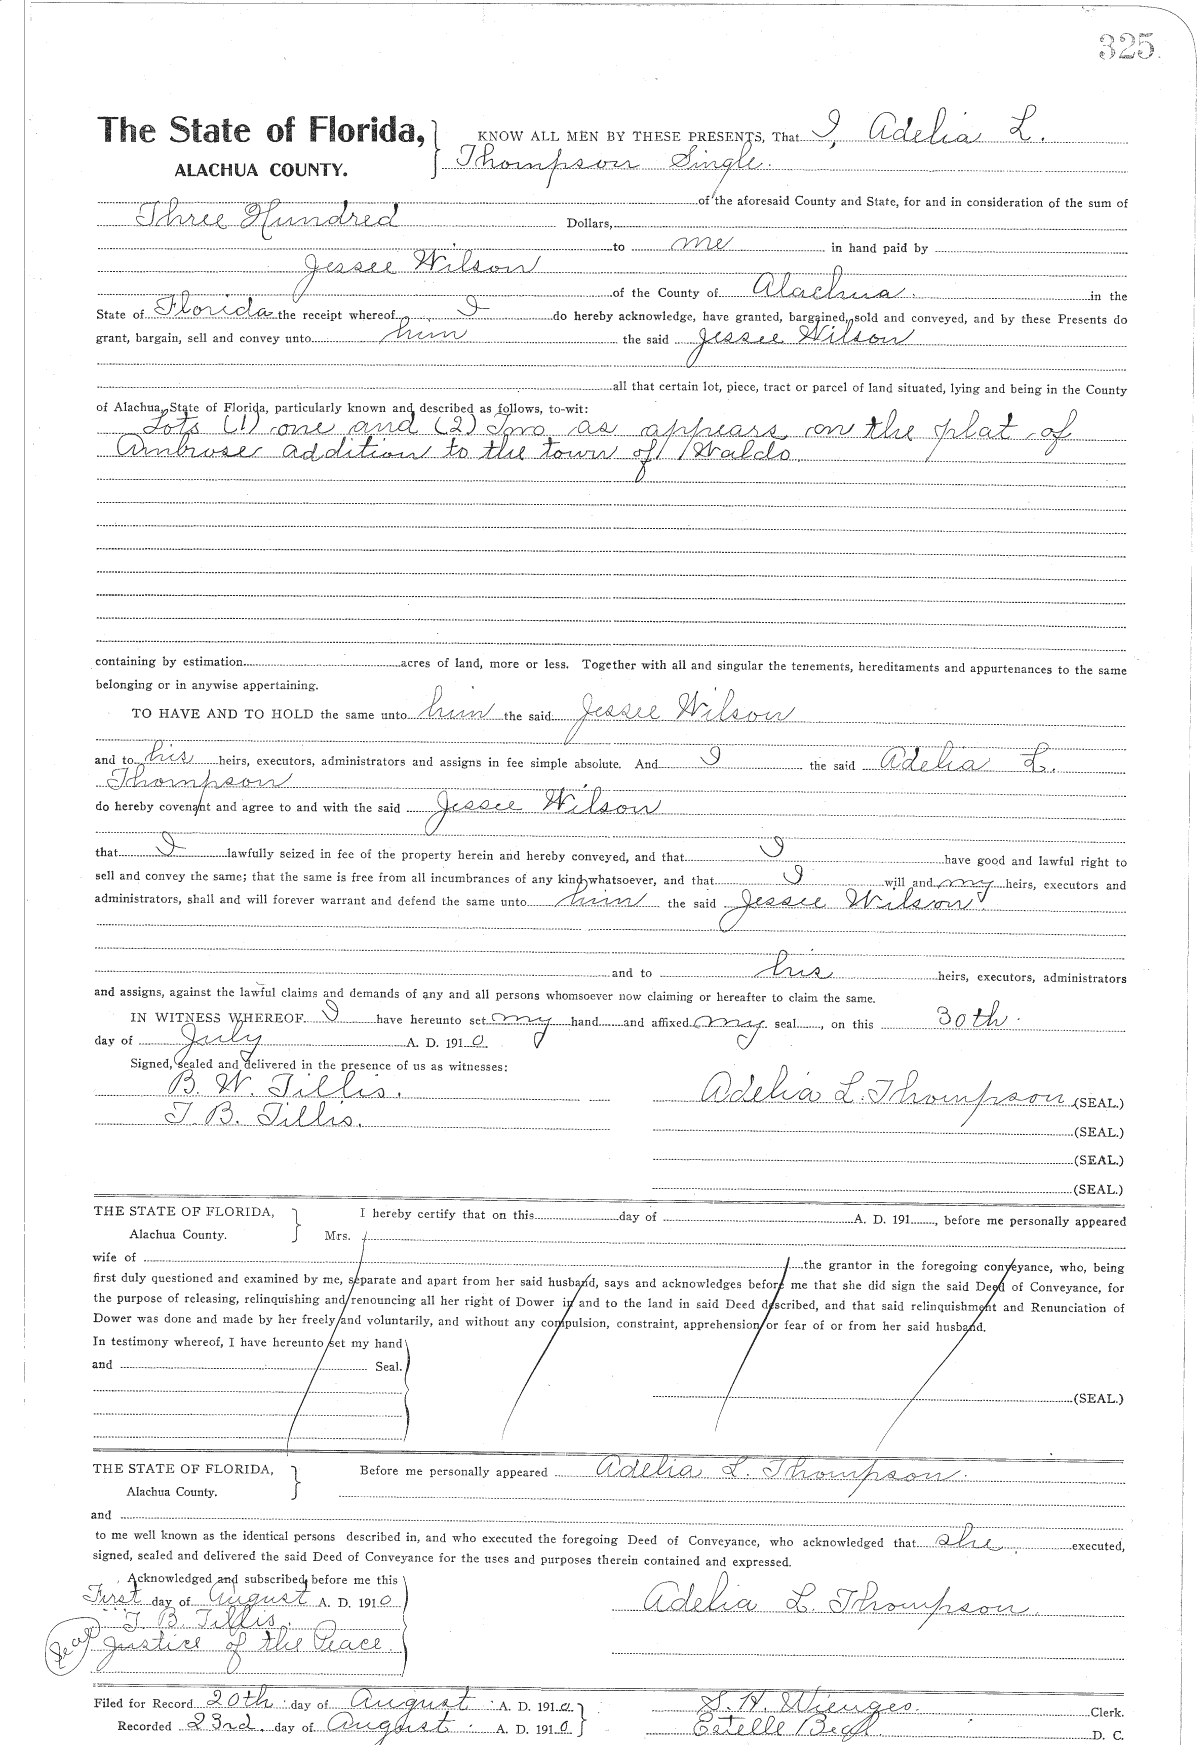 325
The State of Florida, } KNOW ALL MEN BY THESE PRESENTS, That I, Adelia L.
ALACHUA COUNTY. Thompson Single.
of the aforesaid County and State, for and in consideration of the sum of
Three Hundred Dollars,
to me in hand paid by
Jessee Wilson
of the County of Alachua. in the
State of Florida the receipt whereof I do hereby acknowledge, have granted, bargained, sold and conveyed, and by these Presents do
grant, bargain, sell and convey unto him the said Jessee Wilson
all that certain lot, piece, tract or parcel of land situated, lying and being in the County
of Alachua, State of Florida, particularly known and described as follows, to-wit:
Lots (1) one and (2) Two as appears on the plat of
Ambrose addition to the town of Waldo
containing by estimation acres of land, more or less. Together with all and singular the tenements, hereditaments and appurtenances to the same
belonging or in anywise appertaining.
TO HAVE AND TO HOLD the same unto him the said Jessee Wilson
and to his heirs, executors, administrators and assigns in fee simple absolute. And I the said Adelia L.
Thompson
do hereby covenant and agree to and with the said Jessee Wilson
that I lawfully seized in fee of the property herein and hereby conveyed, and that I have good and lawful right to
sell and convey the same; that the same is free from all incumbrances of any kind whatsoever, and that I will and my heirs, executors and
administrators, shall and will forever warrant and defend the same unto him the said Jessee Wilson
and to his heirs, executors, administrators
and assigns, against the lawful claims and demands of any and all persons whomsoever now claiming or hereafter to claim the same.
IN WITNESS WHEREOF. I have hereunto set my hand and affixed my seal, on this 30th.
day of July A. D. 1910
Signed, sealed and delivered in the presence of us as witnesses:
B. W. Tillis. Adelia L. Thompson (SEAL.)
T. B. Tillis. (SEAL.)
(SEAL.)
(SEAL.)
THE STATE OF FLORIDA, } I hereby certify that on this day of A. D. 191, before me personally appeared
Alachua County. Mrs.
wife of the grantor in the foregoing conveyance, who, being
first duly questioned and examined by me, separate and apart from her said husband, says and acknowledges before me that she did sign the said Deed of Conveyance, for
the purpose of releasing, relinquishing and renouncing all her right of Dower in and to the land in said Deed described, and that said relinquishment and Renunciation of
Dower was done and made by her freely and voluntarily, and without any compulsion, constraint, apprehension or fear of or from her said husband.
In testimony whereof, I have hereunto set my hand
and Seal.
(SEAL.)
THE STATE OF FLORIDA, } Before me personally appeared Adelia L. Thompson.
Alachua County.
and
to me well known as the identical persons described in, and who executed the foregoing Deed of Conveyance, who acknowledged that she executed,
signed, sealed and delivered the said Deed of Conveyance for the uses and purposes therein contained and expressed.
Acknowledged and subscribed before me this
First day of August A. D. 1910 Adelia L. Thompson.
T. B. Tillis.
Seal Justice of the Peace.
Filed for Record 20th day of August A. D. 1910 S. H. Wienges. Clerk.
Recorded 23rd. day of August. A. D. 1910 Estelle D. C.